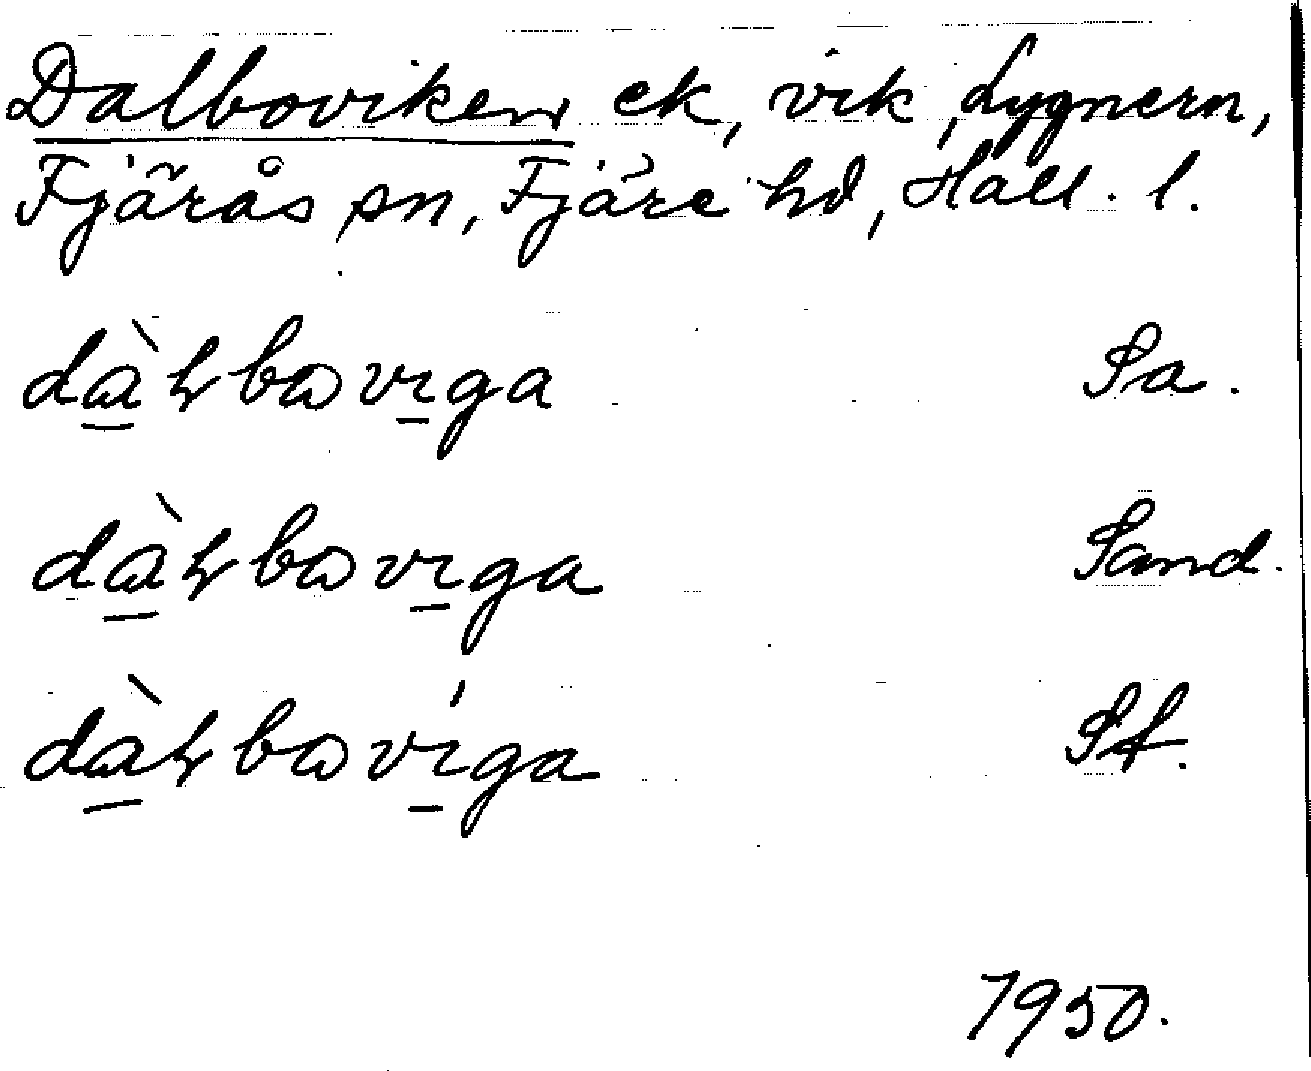 Dalboviken ek, vik, Lygnern,
Fjärås sn, Fjäre hd, Hall. l.
dàɫbovıga Sa.
dàɫbovıga Sand.
dàɫbovíga Sf.
1950.